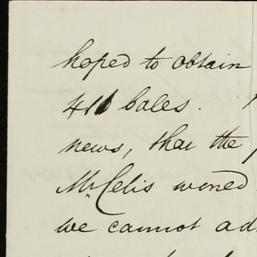 hoped to obtain
bales.
news, that the
Mr Celis
we cannot ad